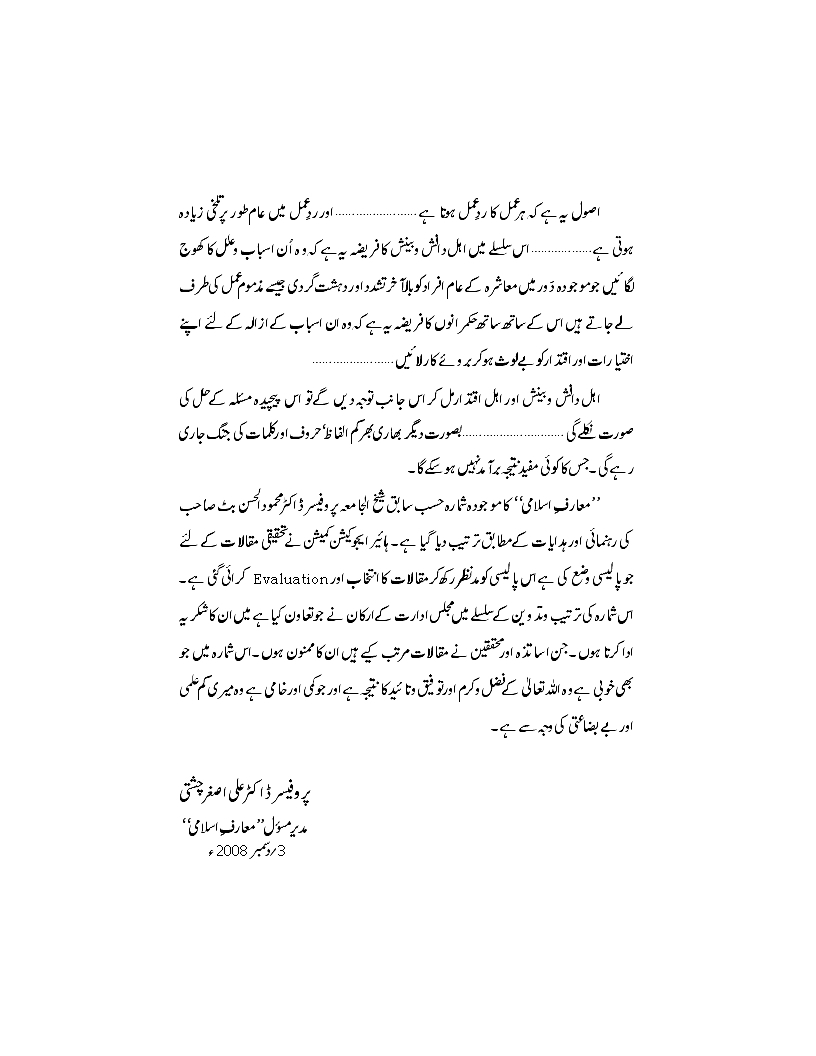 اصول یہ ہے کہ ہر عمل کا ردِعمل ہوتا ہے ......................... اور ردِعمل میں عام طور پر تلخی زیادہ
ہوتی ہے ................... اس سلسلے میں اہل دانش و بینش کا فریضہ یہ ہے کہ وہ اُن اسباب و علل کا کھوج
لگائیں جو موجودہ دَور میں معاشرہ کے عام افراد کو بالآخر تشدد اور دہشت گردی جیسے مذموم عمل کی طرف
لے جاتے ہیں اس کے ساتھ ساتھ حکمرانوں کا فریضہ یہ ہے کہ وہ ان اسباب کے ازالہ کے لئے اپنے
اختیارات اور اقتدار کو بے لوث ہو کر بروئے کار لائیں .........................
اہل دانش و بینش اور اہل اقتدار مل کر اس جانب توجہ دیں گے تو اس پیچیدہ مسئلہ کے حل کی
صورت نکلے گی ............................... بصورت دیگر بھاری بھرکم الفاظ‘ حروف اور کلمات کی جنگ جاری
رہے گی ۔ جس کا کوئی مفید نتیجہ برآمد نہیں ہو سکے گا ۔
’’معارفِ اسلامی‘‘ کا موجودہ شمارہ حسب سابق شیخ الجامعہ پروفیسر ڈاکٹر محمود الحسن بٹ صاحب
کی رہنمائی اور ہدایات کے مطابق ترتیب دیا گیا ہے ۔ ہائیر ایجوکیشن کمیشن نے تحقیقی مقالات کے لئے
جو پالیسی وضع کی ہے اس پالیسی کو مدنظر رکھ کر مقالات کا انتخاب اور Evaluation کرائی گئی ہے ۔
اس شمارہ کی ترتیب و تدوین کے سلسلے میں مجلس ادارت کے ارکان نے جو تعاون کیا ہے میں ان کا شکریہ
ادا کرتا ہوں ۔ جن اساتذہ اور محققین نے مقالات مرتب کیے ہیں ان کا ممنون ہوں ۔ اس شمارہ میں جو
بھی خوبی ہے وہ اللہ تعالیٰ کے فضل و کرم اور توفیق و تائید کا نتیجہ ہے اور جو کمی اور خامی ہے وہ میری کم علمی
اور بے بضاعتی کی وجہ سے ہے ۔
پروفیسر ڈاکٹر علی اصغر چشتی
مدیر مسؤل ’’معارفِ اسلامی‘‘
3؍دسمبر 2008ء